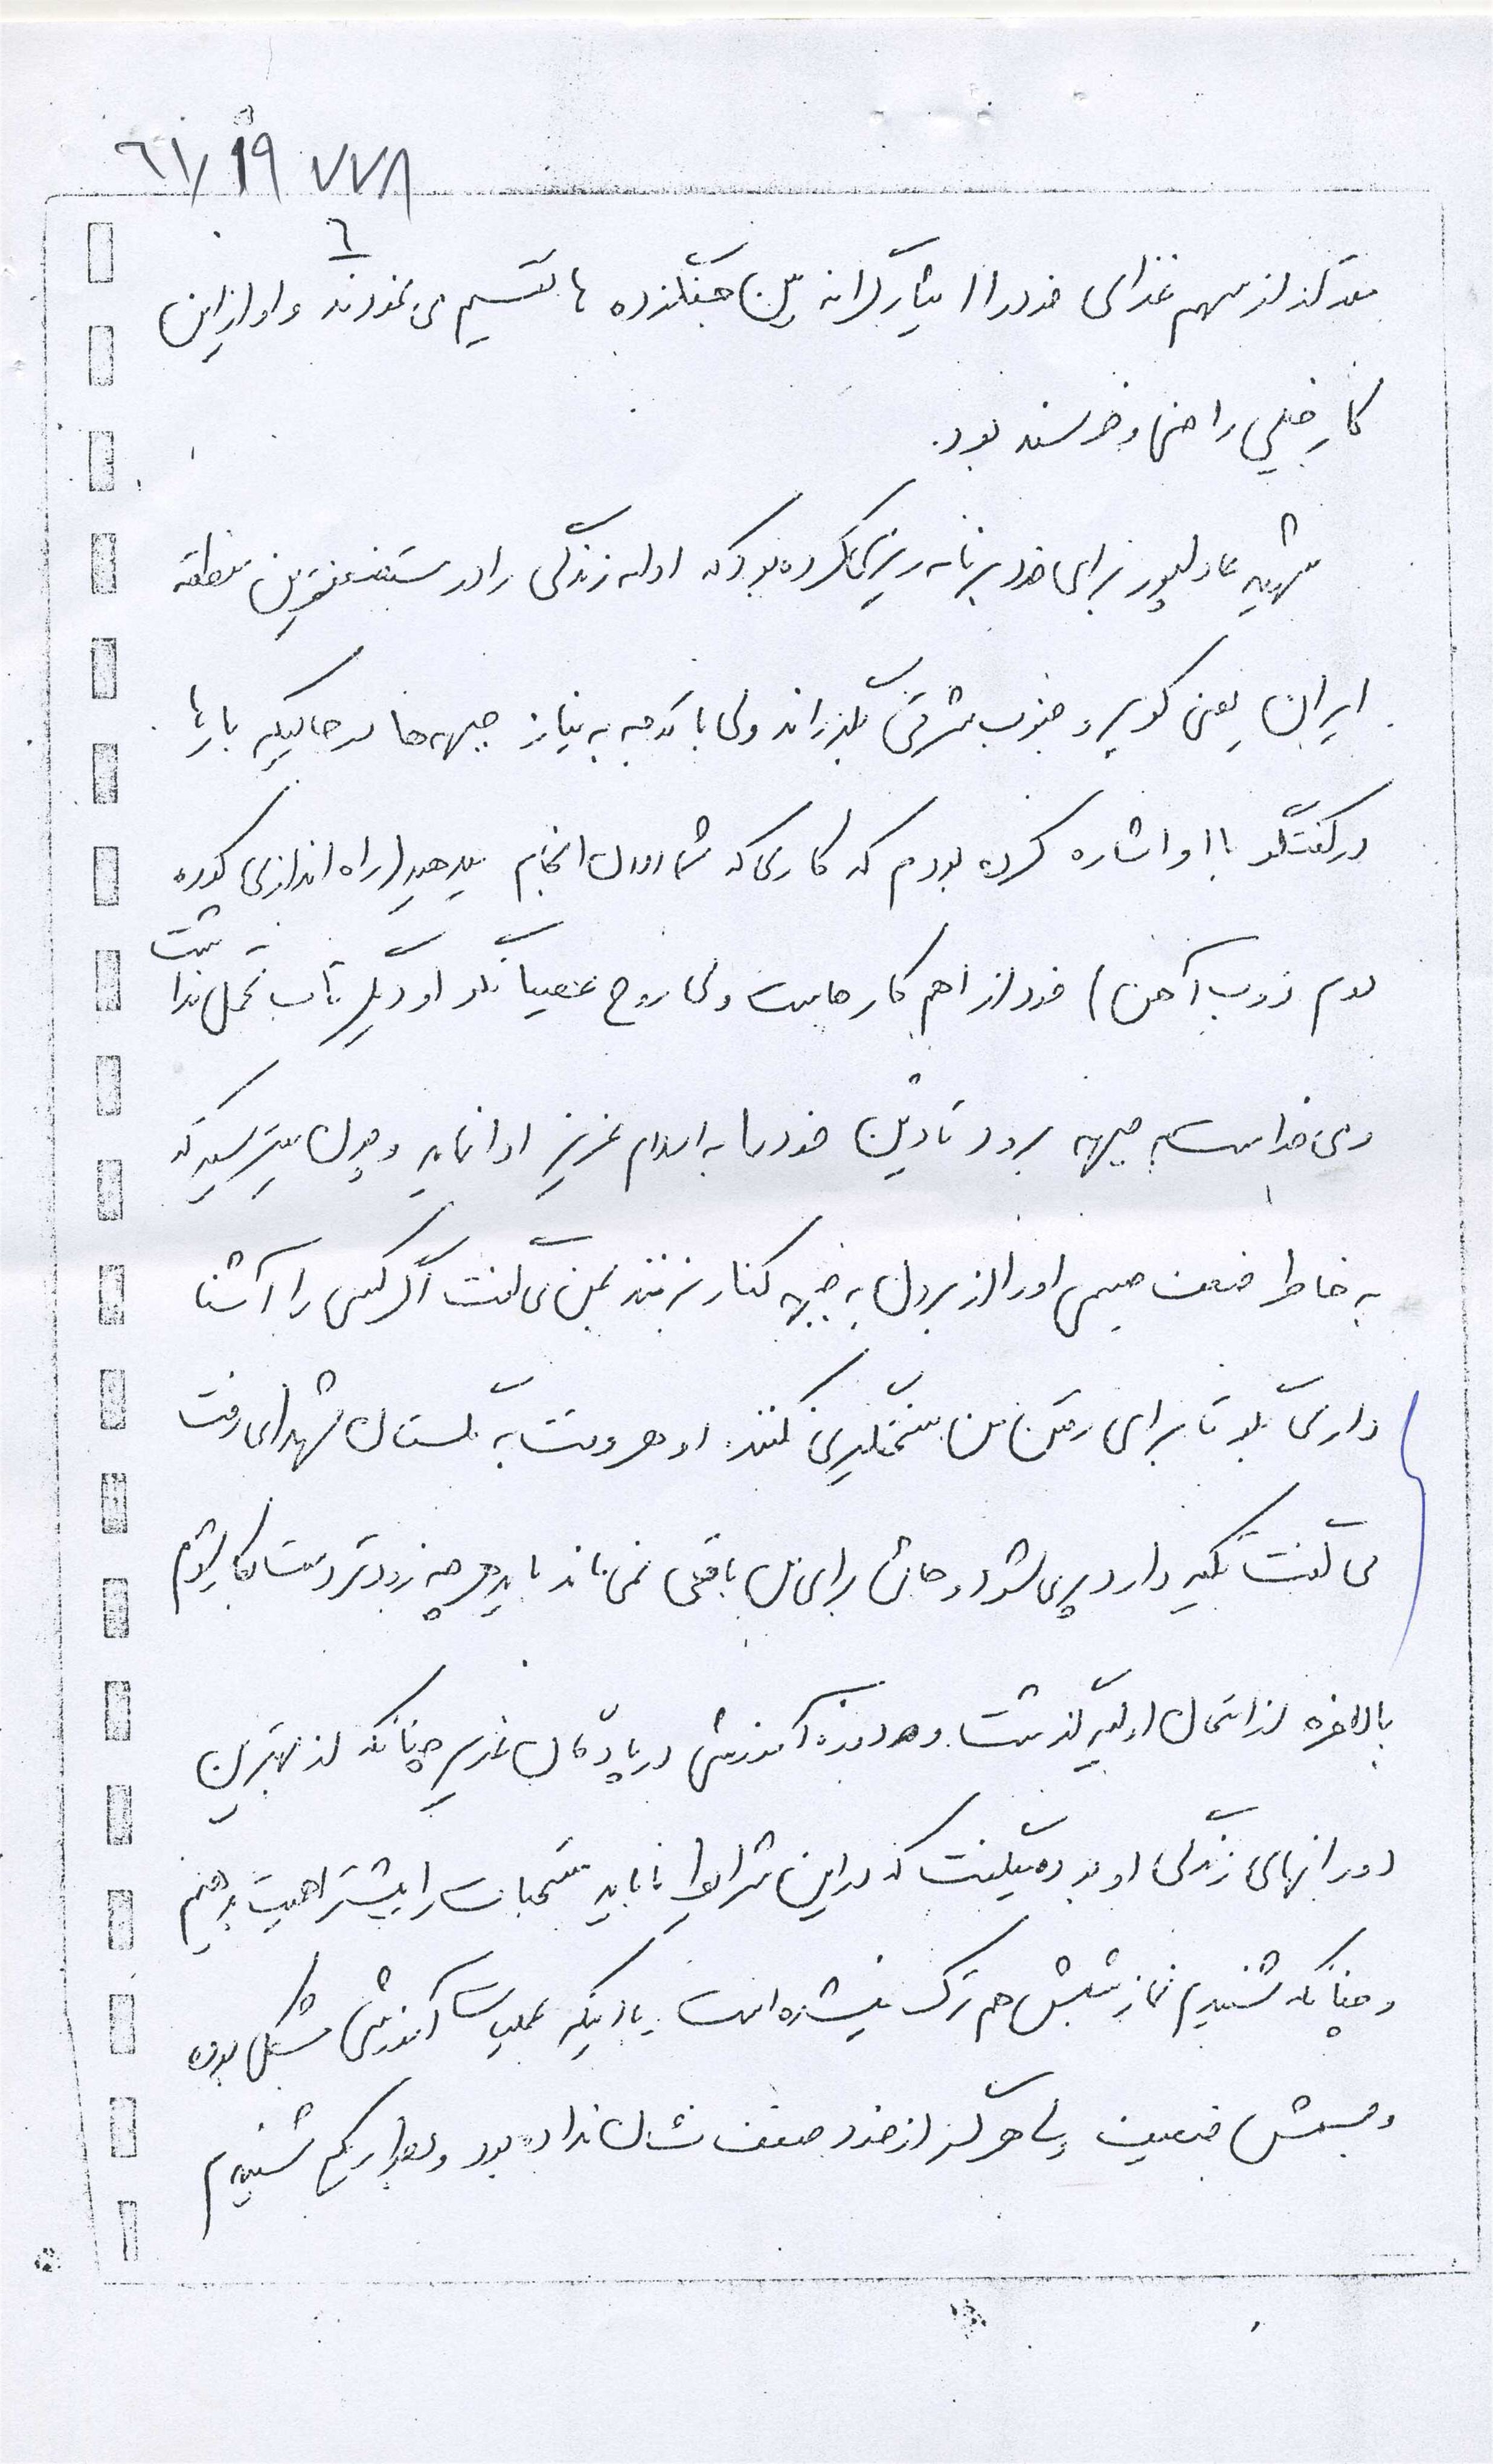 ٦١/١٩٧٧٨
٦
بعد که از سهم غذای خود را ایثارگرانه بین جنگزده ها تقسیم می نمودند و او از این
کار خیلی راضی و خرسند بود.
شهید عادلپور برای خود برنامه ریزی کرده بود که ادامه زندگی را در مستضعفترین منطقه
ایران یعنی کویر و جنوب شرقی بگذراند ولی با توجه به نیاز جبهه ها در حالیکه بارها
در گفتگو با او اشاره کرده بودم که کاری که شما الان انجام میدهید (راه اندازی کوره
دوم ذوب آهن) خود از اهم کارهاست ولی روح او دیگر تاب تحمل نداشت
و می خواست به جبهه برود تا دین خود را به اسلام عزیز ادا نماید و چون میترسید که
به خاطر ضعف جسمی او را از بردن به جبهه کنار بزنند بمن می گفت اگر کسی را آشنا
داری بگو تا برای رفتن من سختگیری نکنند. او هر وقت به گلستان شهدا می رفت
می گفت تکیه دارد پر می شود و جائی برای من باقی نمی ماند باید هر چه زودتر دست بکار شوم
بالاخره از امتحان اولیه گذشت و دوره آموزشی در پادگان غدیر چنانکه از بهترین
دورانهای زندگی او بوده میگفت که در این شرایط ما باید مستحبات را بیشتر اهمیت بدهیم
و چنانکه شنیدم نماز شبش هم ترک نمیشده است با اینکه عملیات آموزشی مشکل بوده
و جسمش ضعیف ولی هرگز از خود ضعف نشان نداده بود و شنیدم